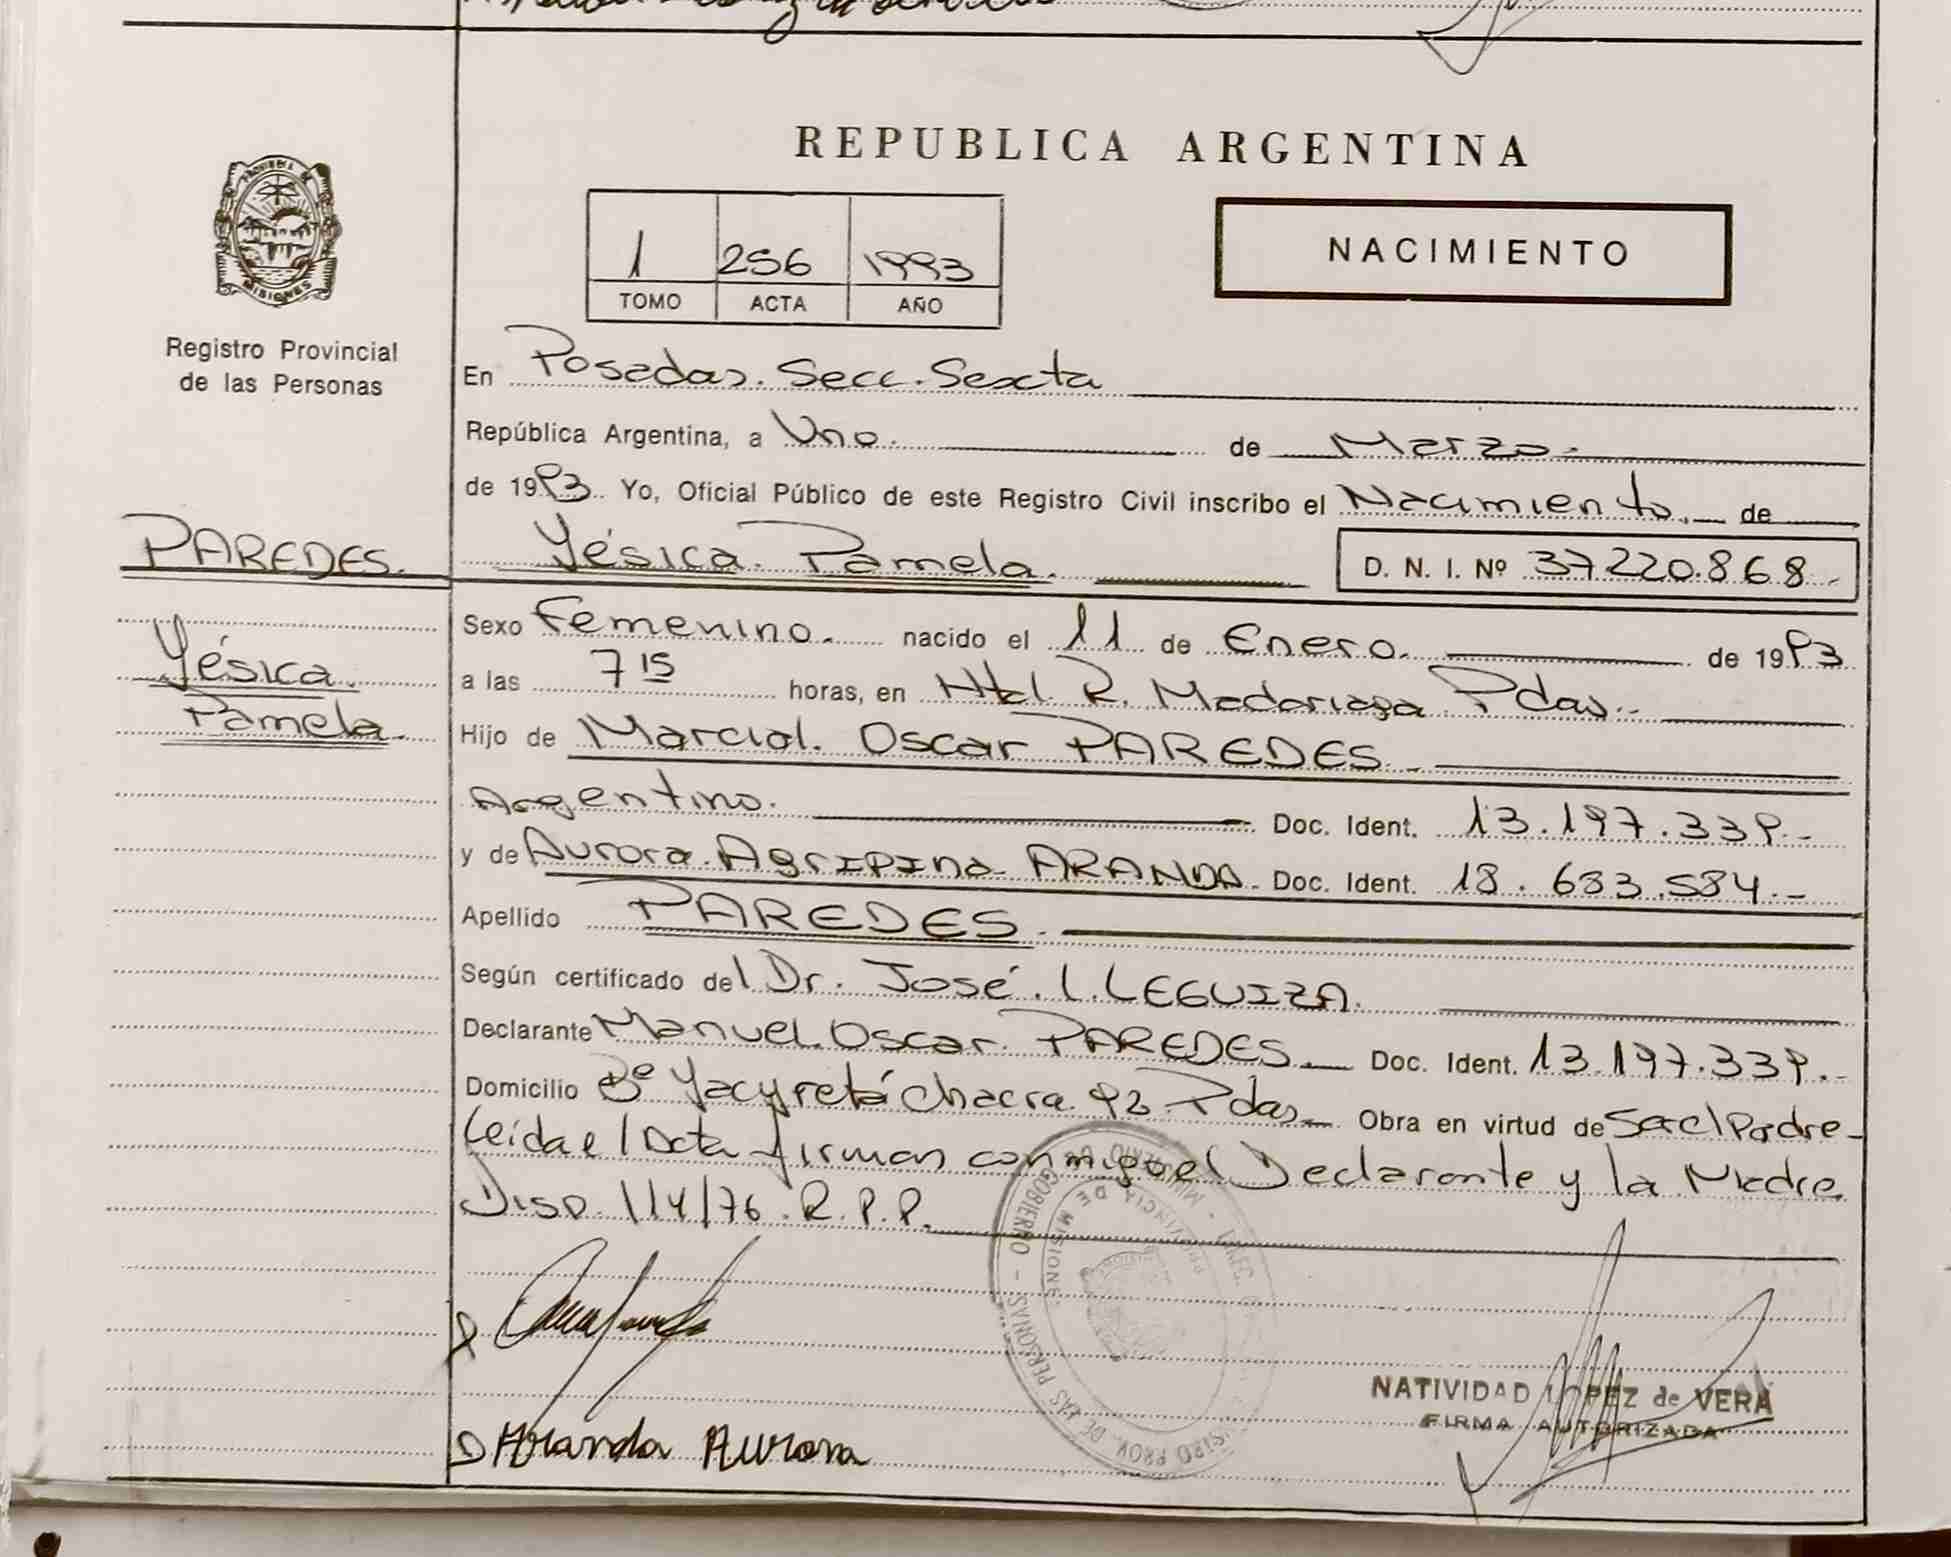 REPUBLICA ARGENTINA
PROVINCIA DE
MISIONES
Registro Provincial
de las Personas
1 256 1993
TOMO ACTA AÑO
NACIMIENTO
En Posadas. Secc. Sexta
República Argentina, a Uno. de Marzo.
de 1993. Yo, Oficial Público de este Registro Civil inscribo el Nacimiento. de
PAREDES.
Yésica Pamela.
Yésica. Pamela. D. N. I. Nº 37.220.868.-
Sexo Femenino. nacido el 11 de Enero. de 1993
a las 7 15 horas, en Htal. R. Madariaga Pdas.
Hijo de Marcial. Oscar PAREDES.
Argentino. Doc. Ident. 13.197.339.-
y de Aurora. Agripina ARANDA. Doc. Ident. 18.683.584.-
Apellido PAREDES.
Según certificado del Dr. José. L. LEGUIZA.
Declarante Manuel. Oscar. PAREDES. Doc. Ident. 13.197.339.-
Domicilio Bº Yacyretá Chacra 92 Pdas. Obra en virtud de Ser el Padre-
Leída el Acta firman conmigo el Declarante y la Madre
Disp. 114/76. R. P. P.
NATIVIDAD LOPEZ de VERA
FIRMA AUTORIZADA
Aranda Aurora